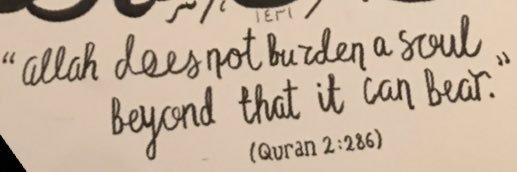 "allah does not burden a soul
beyond that it can bear."
(Quran 2:286)